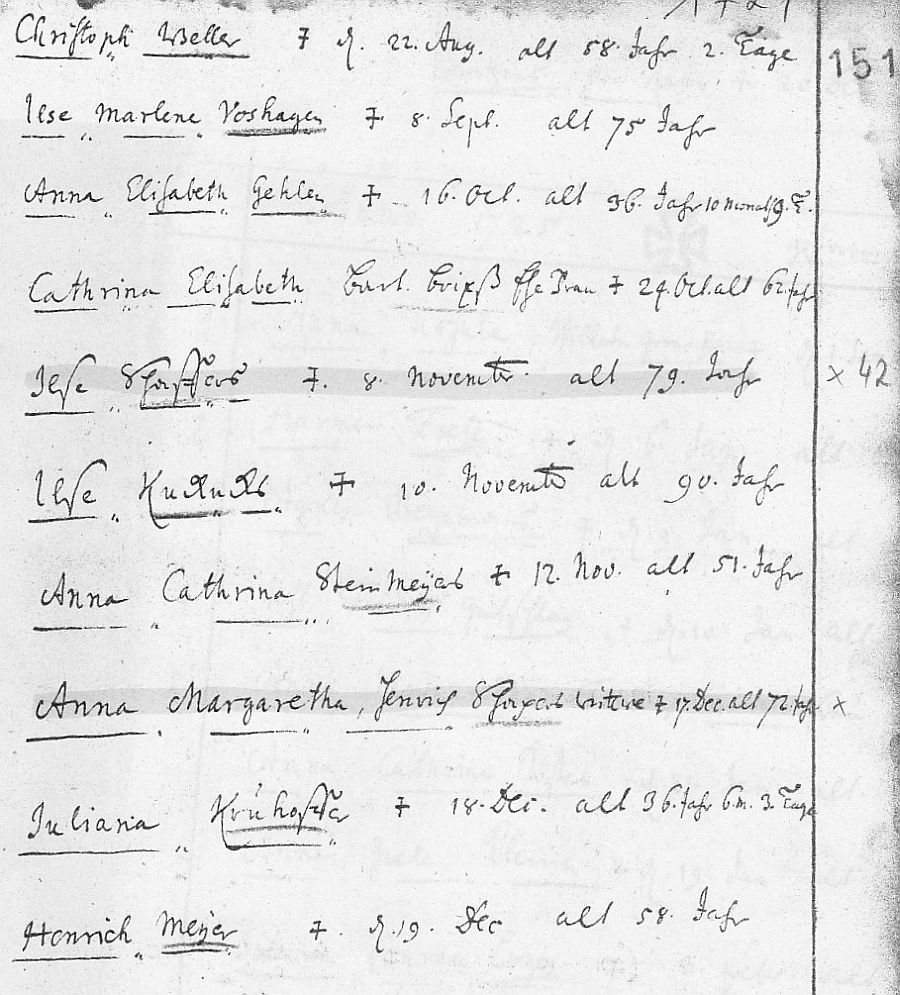 Christoph Weller † d. 22. Aug. alt 58. Jahr 2. Tage
151
Ilse Marlene Voshagen † 8. Sept. alt 75 Jahr
Anna Elisabeth Gehlen † 16. Oct. alt 36. Jahr 10 monat 9. T.
Cathrina Elisabeth Bart. Ehe Frau † 29. Oct. alt 62. Jahr
Ilse † 8. Novemb. alt 79. Jahr × 42
Ilse Kukuks † 10. Novemb. alt 90. Jahr
Anna Cathrina Steinmeyers † 12. Nov. alt 51. Jahr
Anna Margaretha, Henrich Witwe † 17. Dec. alt 72 Jahr ×
Juliana † 18. Dec. alt 36. Jahr 6 m. 3. Tage
Henrich Meijer † d. 19. Dec alt 58. Jahr